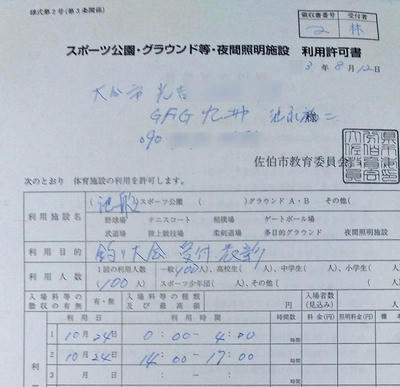 様式第2号(第3条関係)
領収書番号 受付者
2 林
スポーツ公園・グラウンド等・夜間照明施設 利用許可書
3年8月12日
大分市
GFG 九州 様
090
佐伯市教育委員会
次のとおり 体育施設の利用を許可します。
利用施設名
(池船)スポーツ公園 ( )グラウンドA・B その他(
野球場 テニスコート 相撲場 ゲートボール場
武道場 陸上競技場 柔剣道場 多目的グラウンド 夜間照明施設
利用目的 釣り大会 受付
利用人数
1回の利用人数 一般(100人)、高校生( 人)、中学生( 人)、小学生(
(100)人 スポーツ少年団( 人)、その他(
入場料等の徴収の有無 有・無 入場料等の種類及び最高額 円 入場者数(見込み) 人
利用月日 利用時間 時間数 料金(円) 照明料金(円)
1 10月24日 0:00-4:00 時間
2 10月24日 14:00-17:00 時間
3 月 日 時間